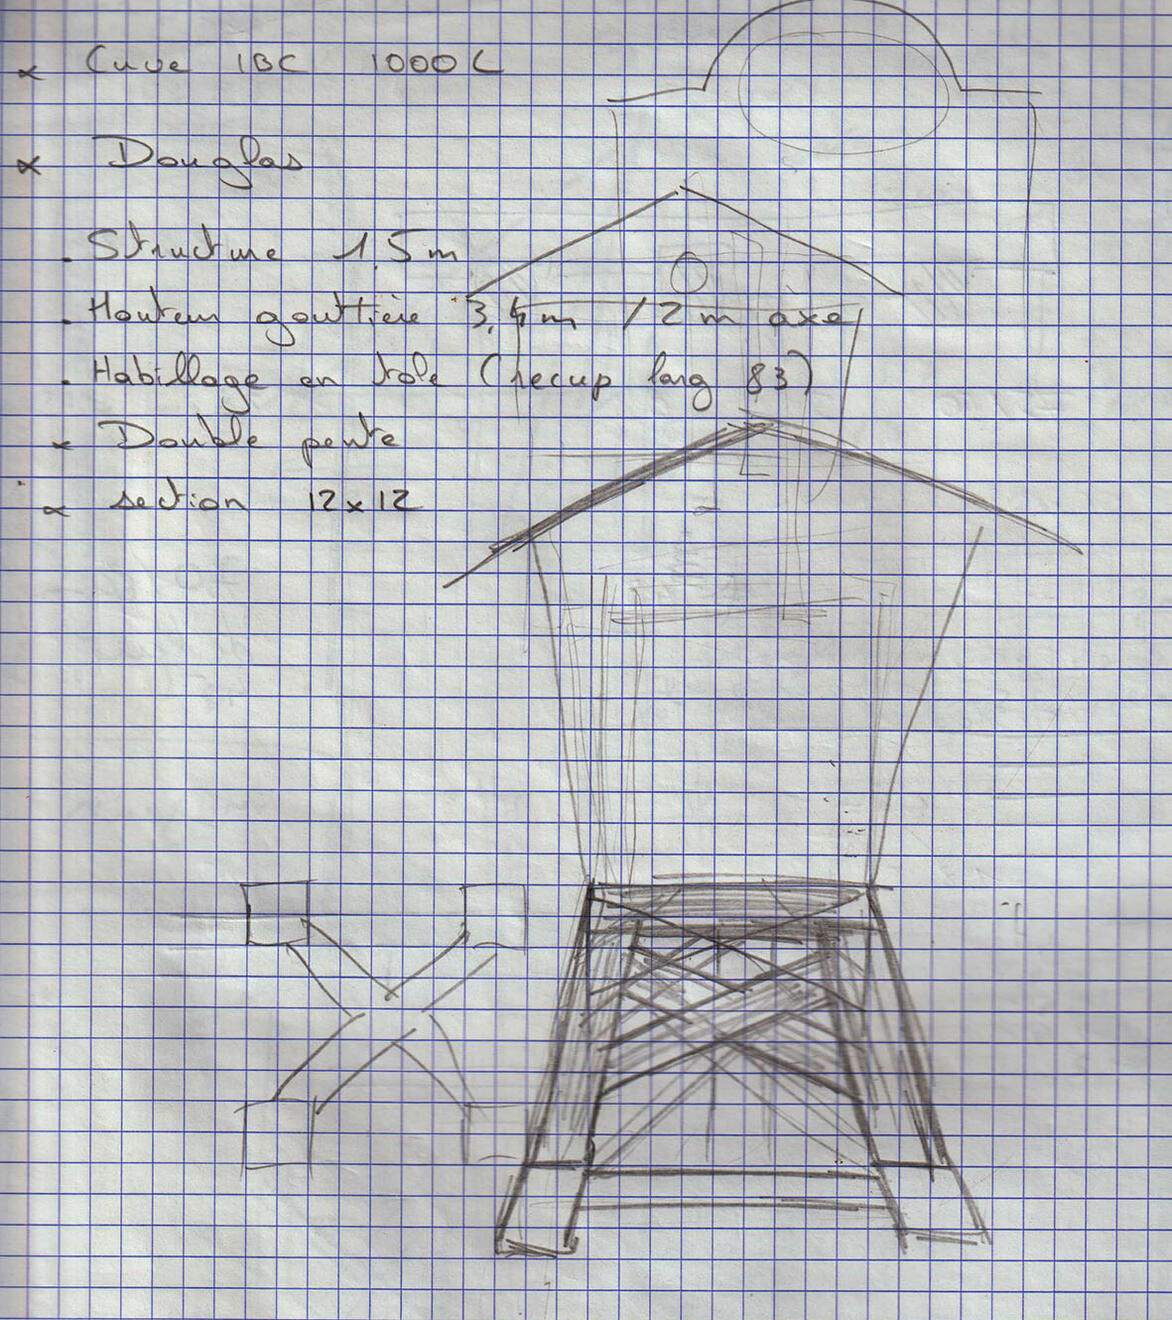 Cuve IBC 1000L
Douglas
Structure 1,5m
Hauteur gouttière 3,4m / 2m axe
Habillage en tole (recup larg 83)
Double pente
section 12x12